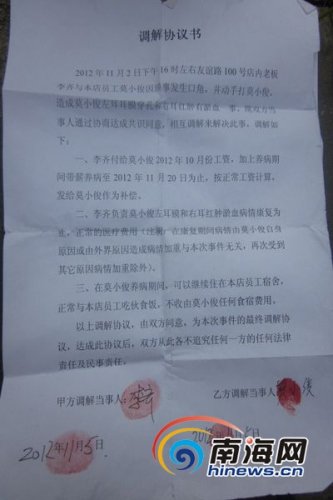 调解协议书
2012年11月2日下午16时左右友谊路100号店内老板
李齐与本店员工莫小俊因琐事发生口角，并动手打莫小俊，
造成莫小俊左耳耳膜穿孔和右耳红肿淤血
事人通过协商达成共识同意，相互调解来解决此事，调解如
下：
一、李齐付给莫小俊2012年10月份工资，加上养病期
间带薪养病至2012年11月20日为止，按正常工资计算，
发给莫小俊作为补偿。
二、李齐负责莫小俊左耳膜和右耳红肿淤血病情康复为
止，正常的医疗费用（注明：在康复期间病情由莫小俊自身
原因或由外界原因造成病情加重与本次事件无关，再次受到
其它原因病情加重除外）。
三、在莫小俊养病期间，可以继续住在本店员工宿舍，
正常与本店员工吃伙食饭，不收由莫小俊任何食宿费用。
以上调解协议，由双方同意，为本次事件的最终调解协
议，达成此协议后，双方从此各不追究任何一方的任何法律
责任及民事责任。
甲方调解当事人： 乙方调解当事人
2012年11月5日
南海网
hinews.cn